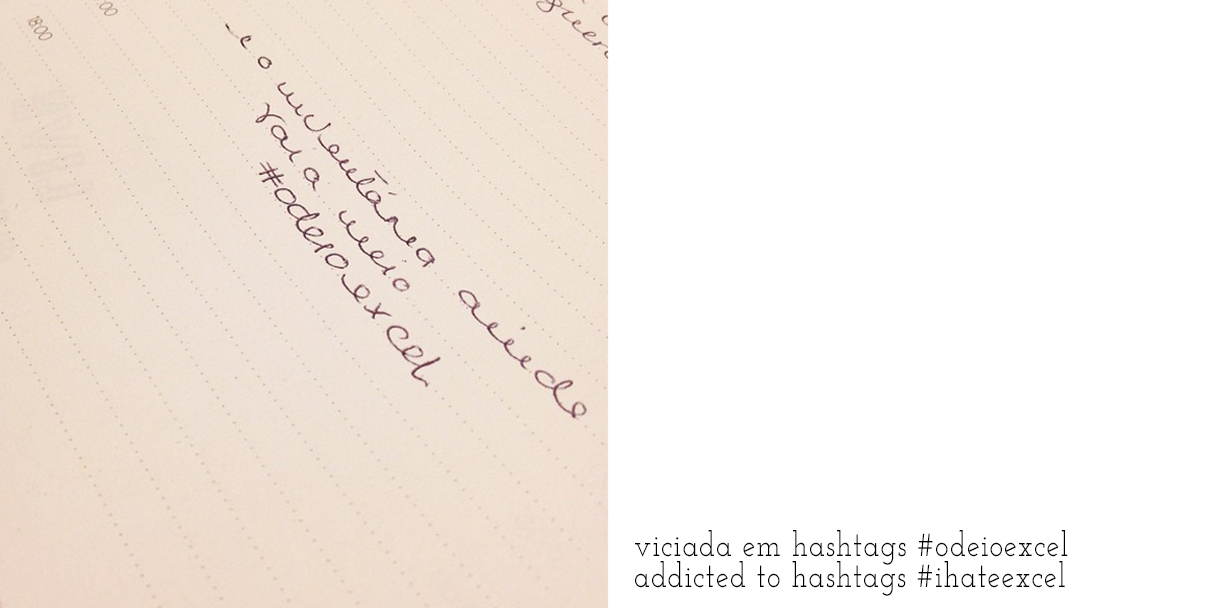 1800
- e o inventário ainda
vai a meio
#odeioexcel
viciada em hashtags #odeioexcel
addicted to hashtags #ihateexcel